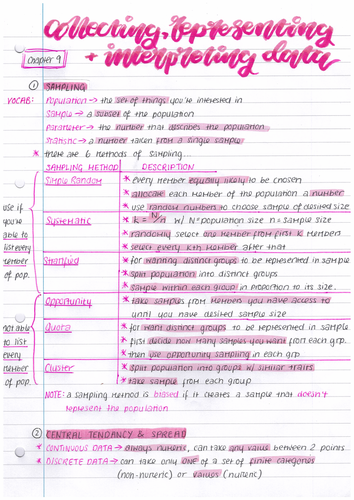 collecting, representing
+ interpreting data
Chapter 9
① SAMPLING
VOCAB: Population → the set of things you're interested in
Sample → a subset of the population
Parameter → the number that describes the population
Statistic → a number taken from a single sample
* there are 6 methods of sampling...
SAMPLING METHOD | DESCRIPTION
Simple Random * every member equally likely to be chosen
* allocate each member of the population a number
use if * use random numbers to choose sample of desired size
you're Systematic * k = N/n w/ N=population size n=sample size
able to * randomly select one member from first k members
list every * select every kth member after that
member Stratified * for wanting distinct groups to be represented in sample
of pop. * split population into distinct groups
* sample within each group in proportion to its size.
Opportunity * take samples from members you have access to
until you have desired sample size
not able Quota * for want distinct groups to be represented in sample
to list * first decide how many samples you want from each grp.
every * then use opportunity sampling in each grp
member Cluster * split population into groups w/ similar traits
of pop. * take sample from each group
NOTE: a sampling method is biased if it creates a sample that doesn't
represent the population
② CENTRAL TENDANCY & SPREAD
* CONTINUOUS DATA → always numeric, can take any value between 2 points
* DISCRETE DATA → can take only one of a set of finite categories
(non-numeric) or values (numeric)